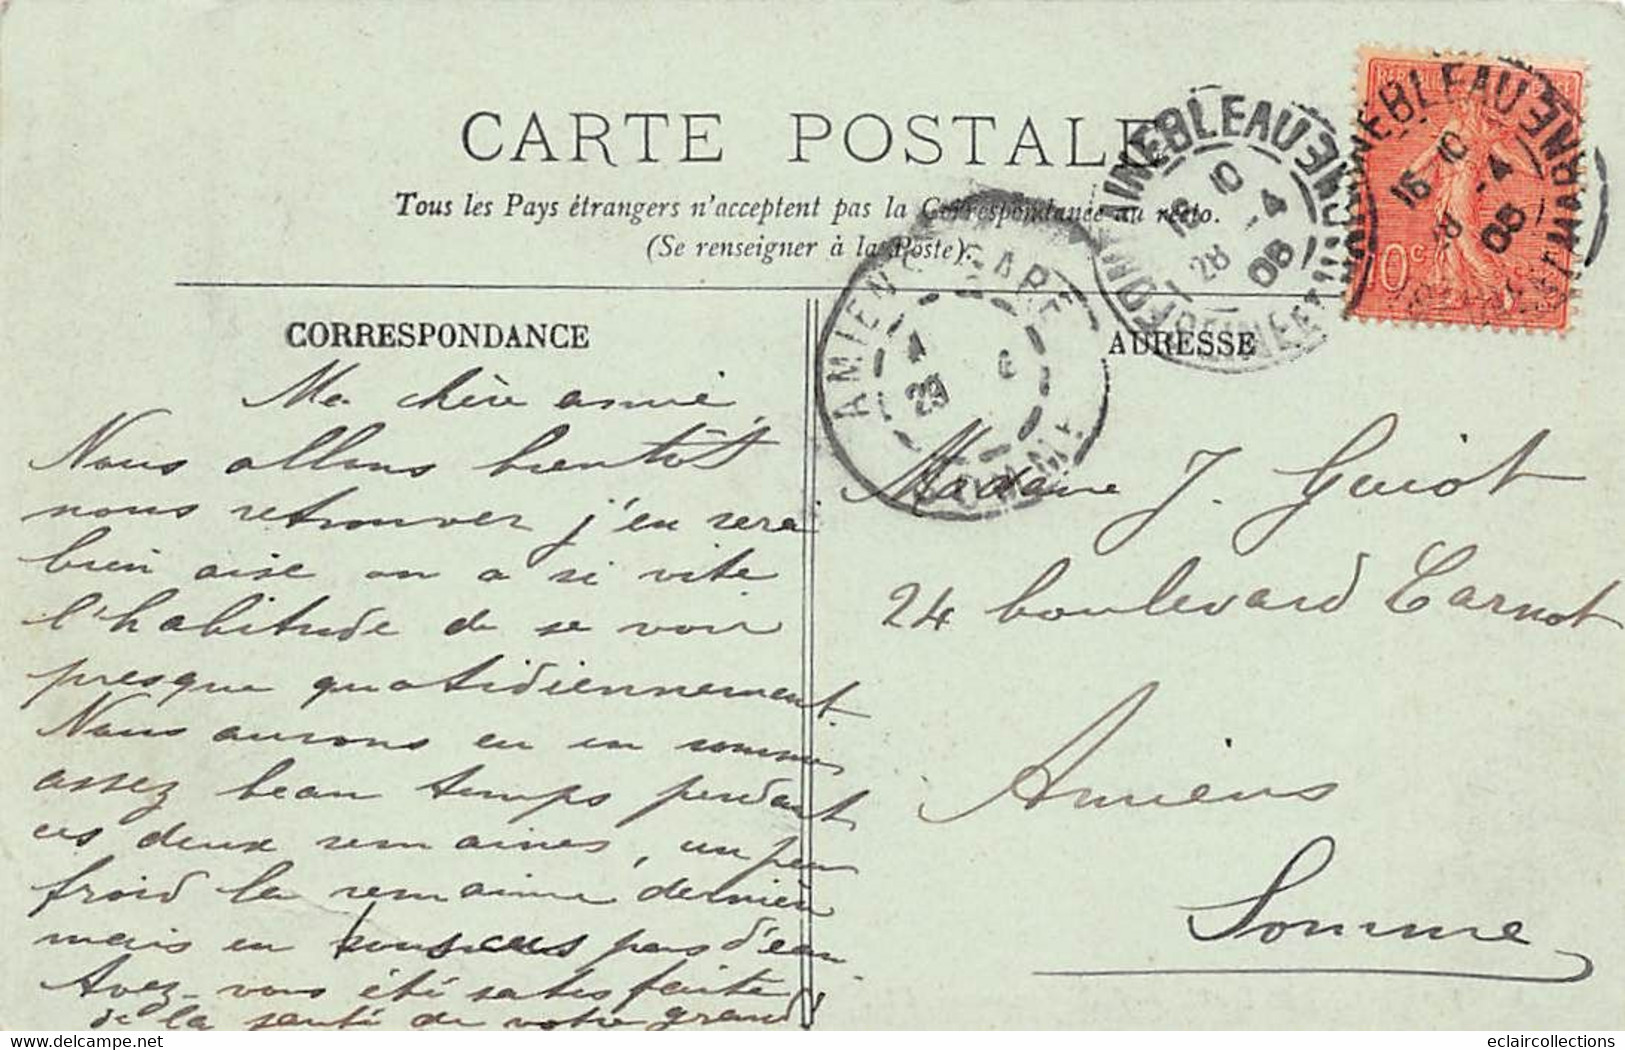 CARTE POSTALE
Tous les Pays étrangers n'acceptent pas la Correspondance au recto.
(Se renseigner à la Poste).
CORRESPONDANCE
Ma chère amie,
Nous allons bientôt
nous retrouver j'en serai
bien aise on a si vite
l'habitude de se voir
presque quotidiennement.
Nous aurons eu en somme
assez beau temps pendant
ces deux semaines, un peu
froid la semaine dernière
mais en pas d'eau.
Avez-vous été satisfaite
de la santé de votre grand
ADRESSE
Madame J. Guiot
24 boulevard Carnot
Amiens
Somme
AMIENS GARE
29 4 6
SOMME
FONTAINEBLEAU
16 10
28 -4
06
SEINE ET MARNE
FONTAINEBLEAU
16 10
28 -4
06
SEINE ET MARNE
10c
www.delcampe.net
eclaircollections